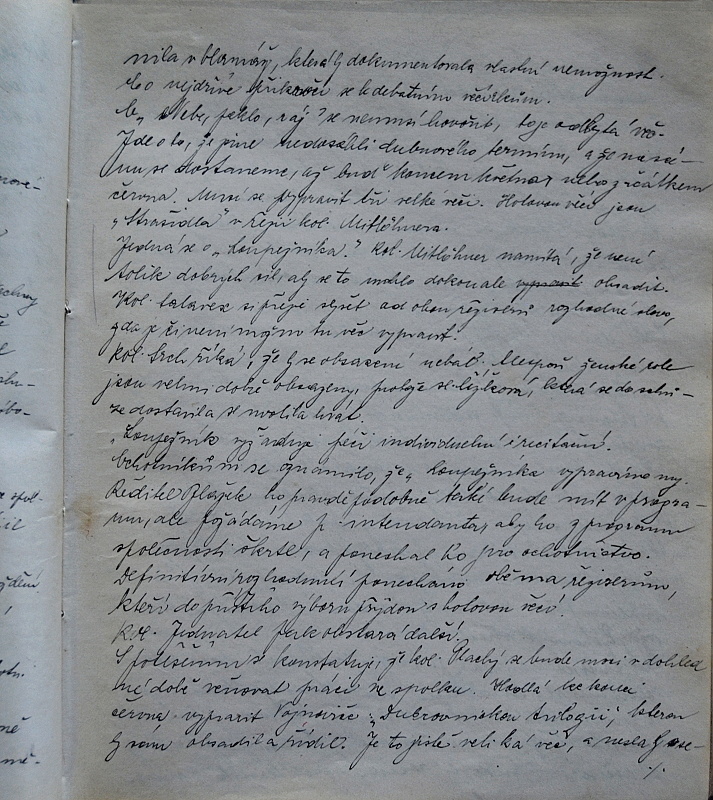 nila v blamáž, která by dokumentovala vlastní nemožnost.
Co nejdříve přikročí se k debatním večírkům.
O „Nebe, peklo, ráj“ se nemusí hovořit, to je odbytá věc.
Jde o to, že jsme nedosáhli dubnového termínu, a že na
se dostaneme, až buď koncem května, nebo začátkem
června. Musí se vypravit tři velké věci. Hotovou věcí jsou
„Strašidla“ v režii kol. Mitlöhnera.
Jedná se o „Loupežníka.“ Kol. Mitlöhner namítá, že není
tolik dobrých sil, aby se to mohlo dokonale obsadit.
Kol. si přeje slyšet od obou režisérů rozhodné slovo,
zda je či není možno tu věc vypravit.
Kol. říká, že by se obsazení nebál. ženské role
jsou velmi dobře obsazeny, protože sl. se do schů-
ze dostavila a svolila hrát.
„Loupežník vyžaduje péči individuelní i recitační.
Ochotníkům se oznámilo, že „Loupežníka vypravíme my.
Ředitel Blažek ho pravděpodobně také bude mít v progra-
mu, ale požádáme p. intendanta, aby ho z programu
společnosti škrtl, a ponechal ho pro ochotnictvo.
Definitivní rozhodnutí ponecháno oběma režisérům,
kteří do příštího výboru přijdou s hotovou věcí.
Kol. Jednatel pak obstará další.
S potěšením se konstatuje, že kol. Vlachý se bude moci v dohled
né době věnovat práci ve spolku. Hodlá ke konci
června vypravit Vojnoviće „Dubrovnickou trilogii“, kterou
by sám obsadil a řídil. Je to jistě veliká věc, a nesla by se-
./.